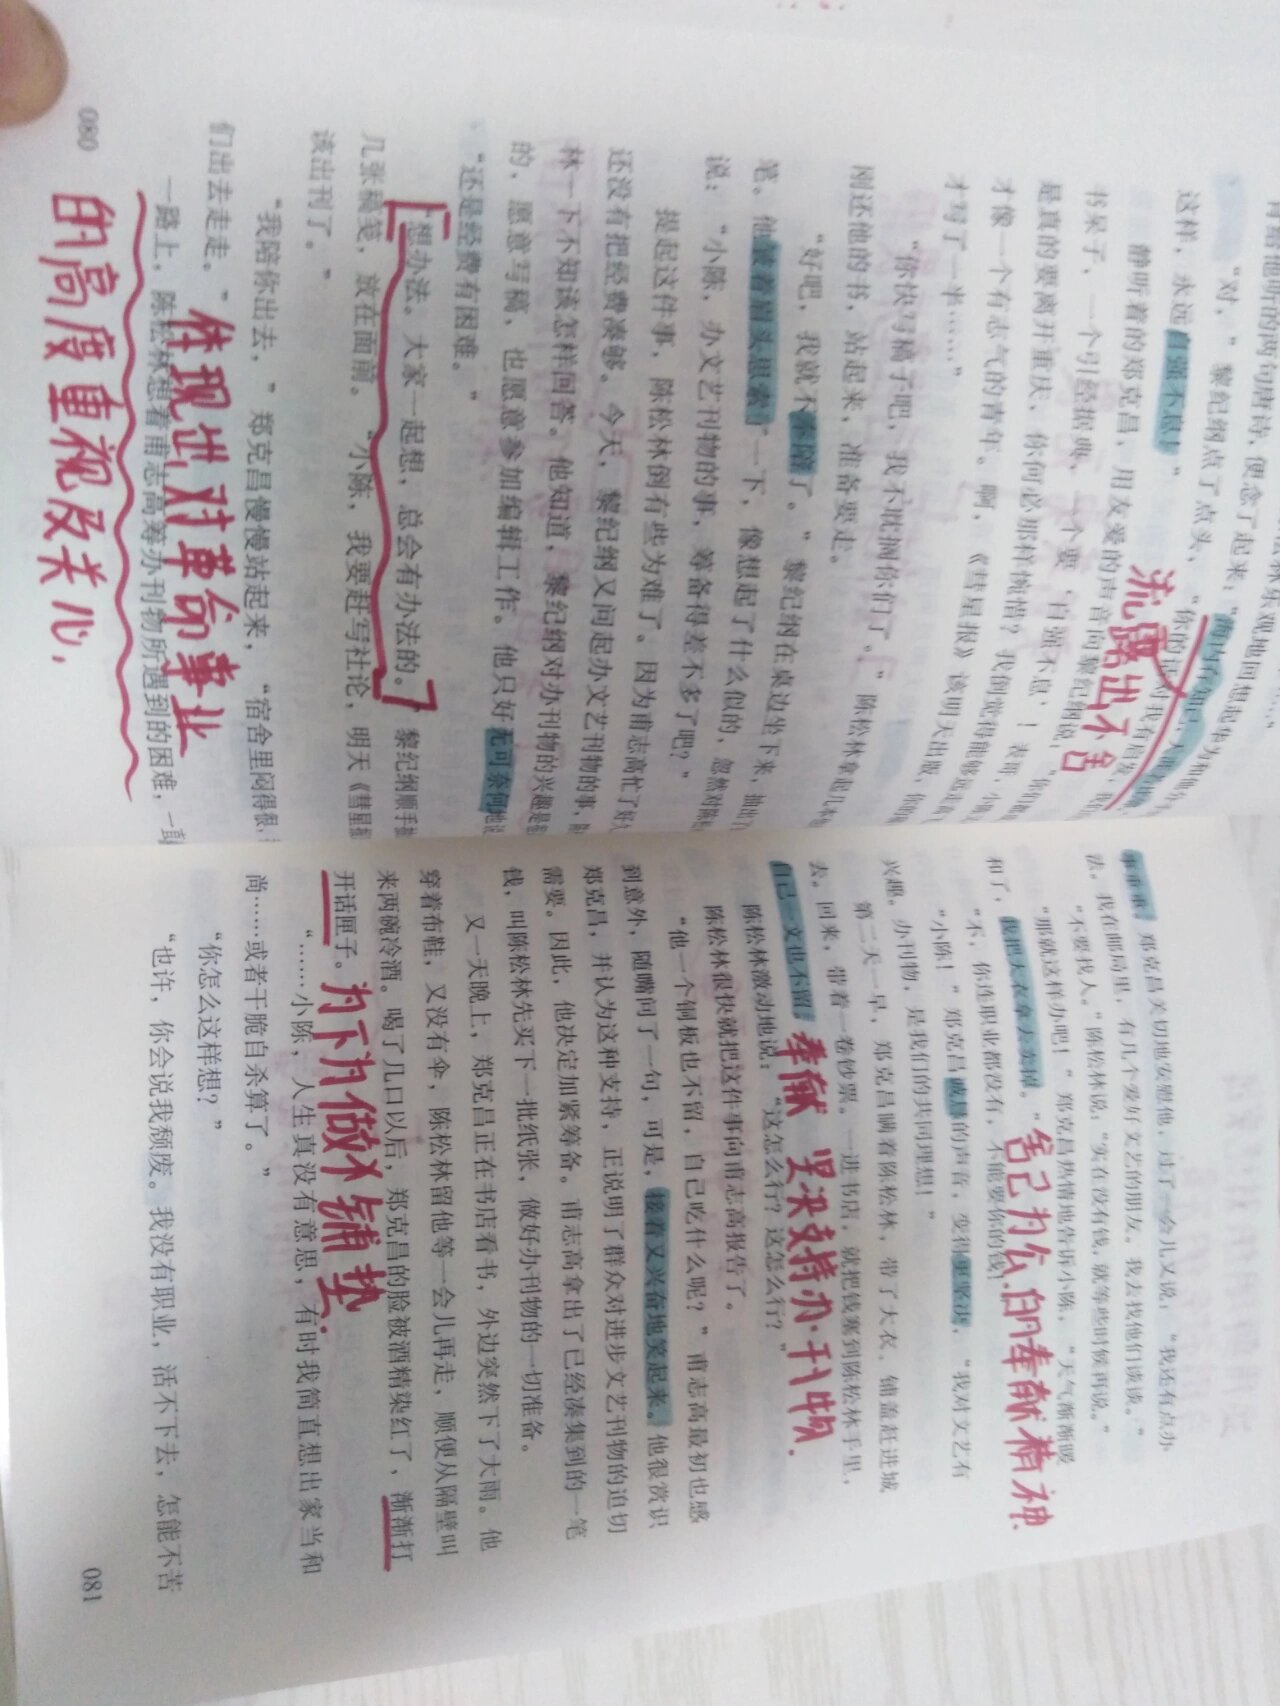 “对，”黎纪纲点了点头，“你的话对我有启发，我
这样，永远自强不息！”
静听着的郑克昌，用友爱的声音向黎纪纲说：
书呆子，一个引经据典，一个要‘自强不息’！表哥，小
是真的要离开重庆，你何必那样惋惜？我倒觉得能够
才像一个有志气的青年。啊，《彗星报》该明天出版，你的
才写了一半……”
“你快写稿子吧，我不耽搁你们了。”陈松林拿起几本
刚还他的书，站起来，准备要走。
“好吧，我就不陪了。”黎纪纲在桌边坐下来，抽出了
笔。他皱着眉头思索了一下，像想起了什么似的，忽然对陈松
说：“小陈，办文艺刊物的事，筹备得差不多了吧？”
提起这件事，陈松林倒有些为难了。因为甫志高忙了好久
还没有把经费凑够。今天，黎纪纲又问起办文艺刊物的事，
林一下不知该怎样回答。他知道，黎纪纲对办刊物的兴趣是
的，愿意写稿，也愿意参加编辑工作。他只好无可奈何地说
“还是经费有困难。”
“想办法。大家一起想，总会有办法的。”黎纪纲顺手
几张稿笺，放在面前。“小陈，我要赶写社论，明天《彗星报
该出刊了。”
“我陪你出去，”郑克昌慢慢站起来，“宿舍里闷得很，
们出去走走。”
一路上，陈松林想着甫志高筹办刊物所遇到的困难，一直
流露出不舍
体现出对革命事业
的高度重视及关心，
080
郑克昌关切地安慰他，过了一会儿又说：“我还有点办
法。我在邮局里，有几个爱好文艺的朋友。我去找他们谈谈。”
“不要找人。”陈松林说，“实在没有钱，就等些时候再说。”
“那就这样办吧！”郑克昌热情地告诉小陈，“天气渐渐暖
和了，我把大衣拿去卖掉。”
“不，你连职业都没有，不能要你的钱！
“小陈！”郑克昌诚恳的声音，变得更坚决，“我对文艺有
兴趣。办刊物，是我们的共同理想！”
第二天一早，郑克昌瞒着陈松林，带了大衣、铺盖赶进城
去。回来，带着一卷钞票。一进书店，就把钱塞到陈松林手里，
自己一文也不留。
陈松林激动地说：“这怎么行？这怎么行？”
陈松林很快就把这件事向甫志高报告了。
“他一个铜板也不留，自己吃什么呢？”甫志高最初也感
到意外，随嘴问了一句，可是，接着又兴奋地笑起来。他很赏识
郑克昌，并认为这种支持，正说明了群众对进步文艺刊物的迫切
需要。因此，他决定加紧筹备。甫志高拿出了已经凑集到的一笔
钱，叫陈松林先买下一批纸张，做好办刊物的一切准备。
又一天晚上，郑克昌正在书店看书，外边突然下了大雨。他
穿着布鞋，又没有伞，陈松林留他等一会儿再走，顺便从隔壁叫
来两碗冷酒。喝了几口以后，郑克昌的脸被酒精染红了，渐渐打
开话匣子。
“……小陈，人生真没有意思，有时我简直想出家当和
尚……或者干脆自杀算了。”
“你怎么这样想？”
“也许，你会说我颓废。我没有职业，活不下去，怎能不苦
舍己为公的奉献精神
奉献 坚决支持办刊物.
为下为做木铺垫.
081